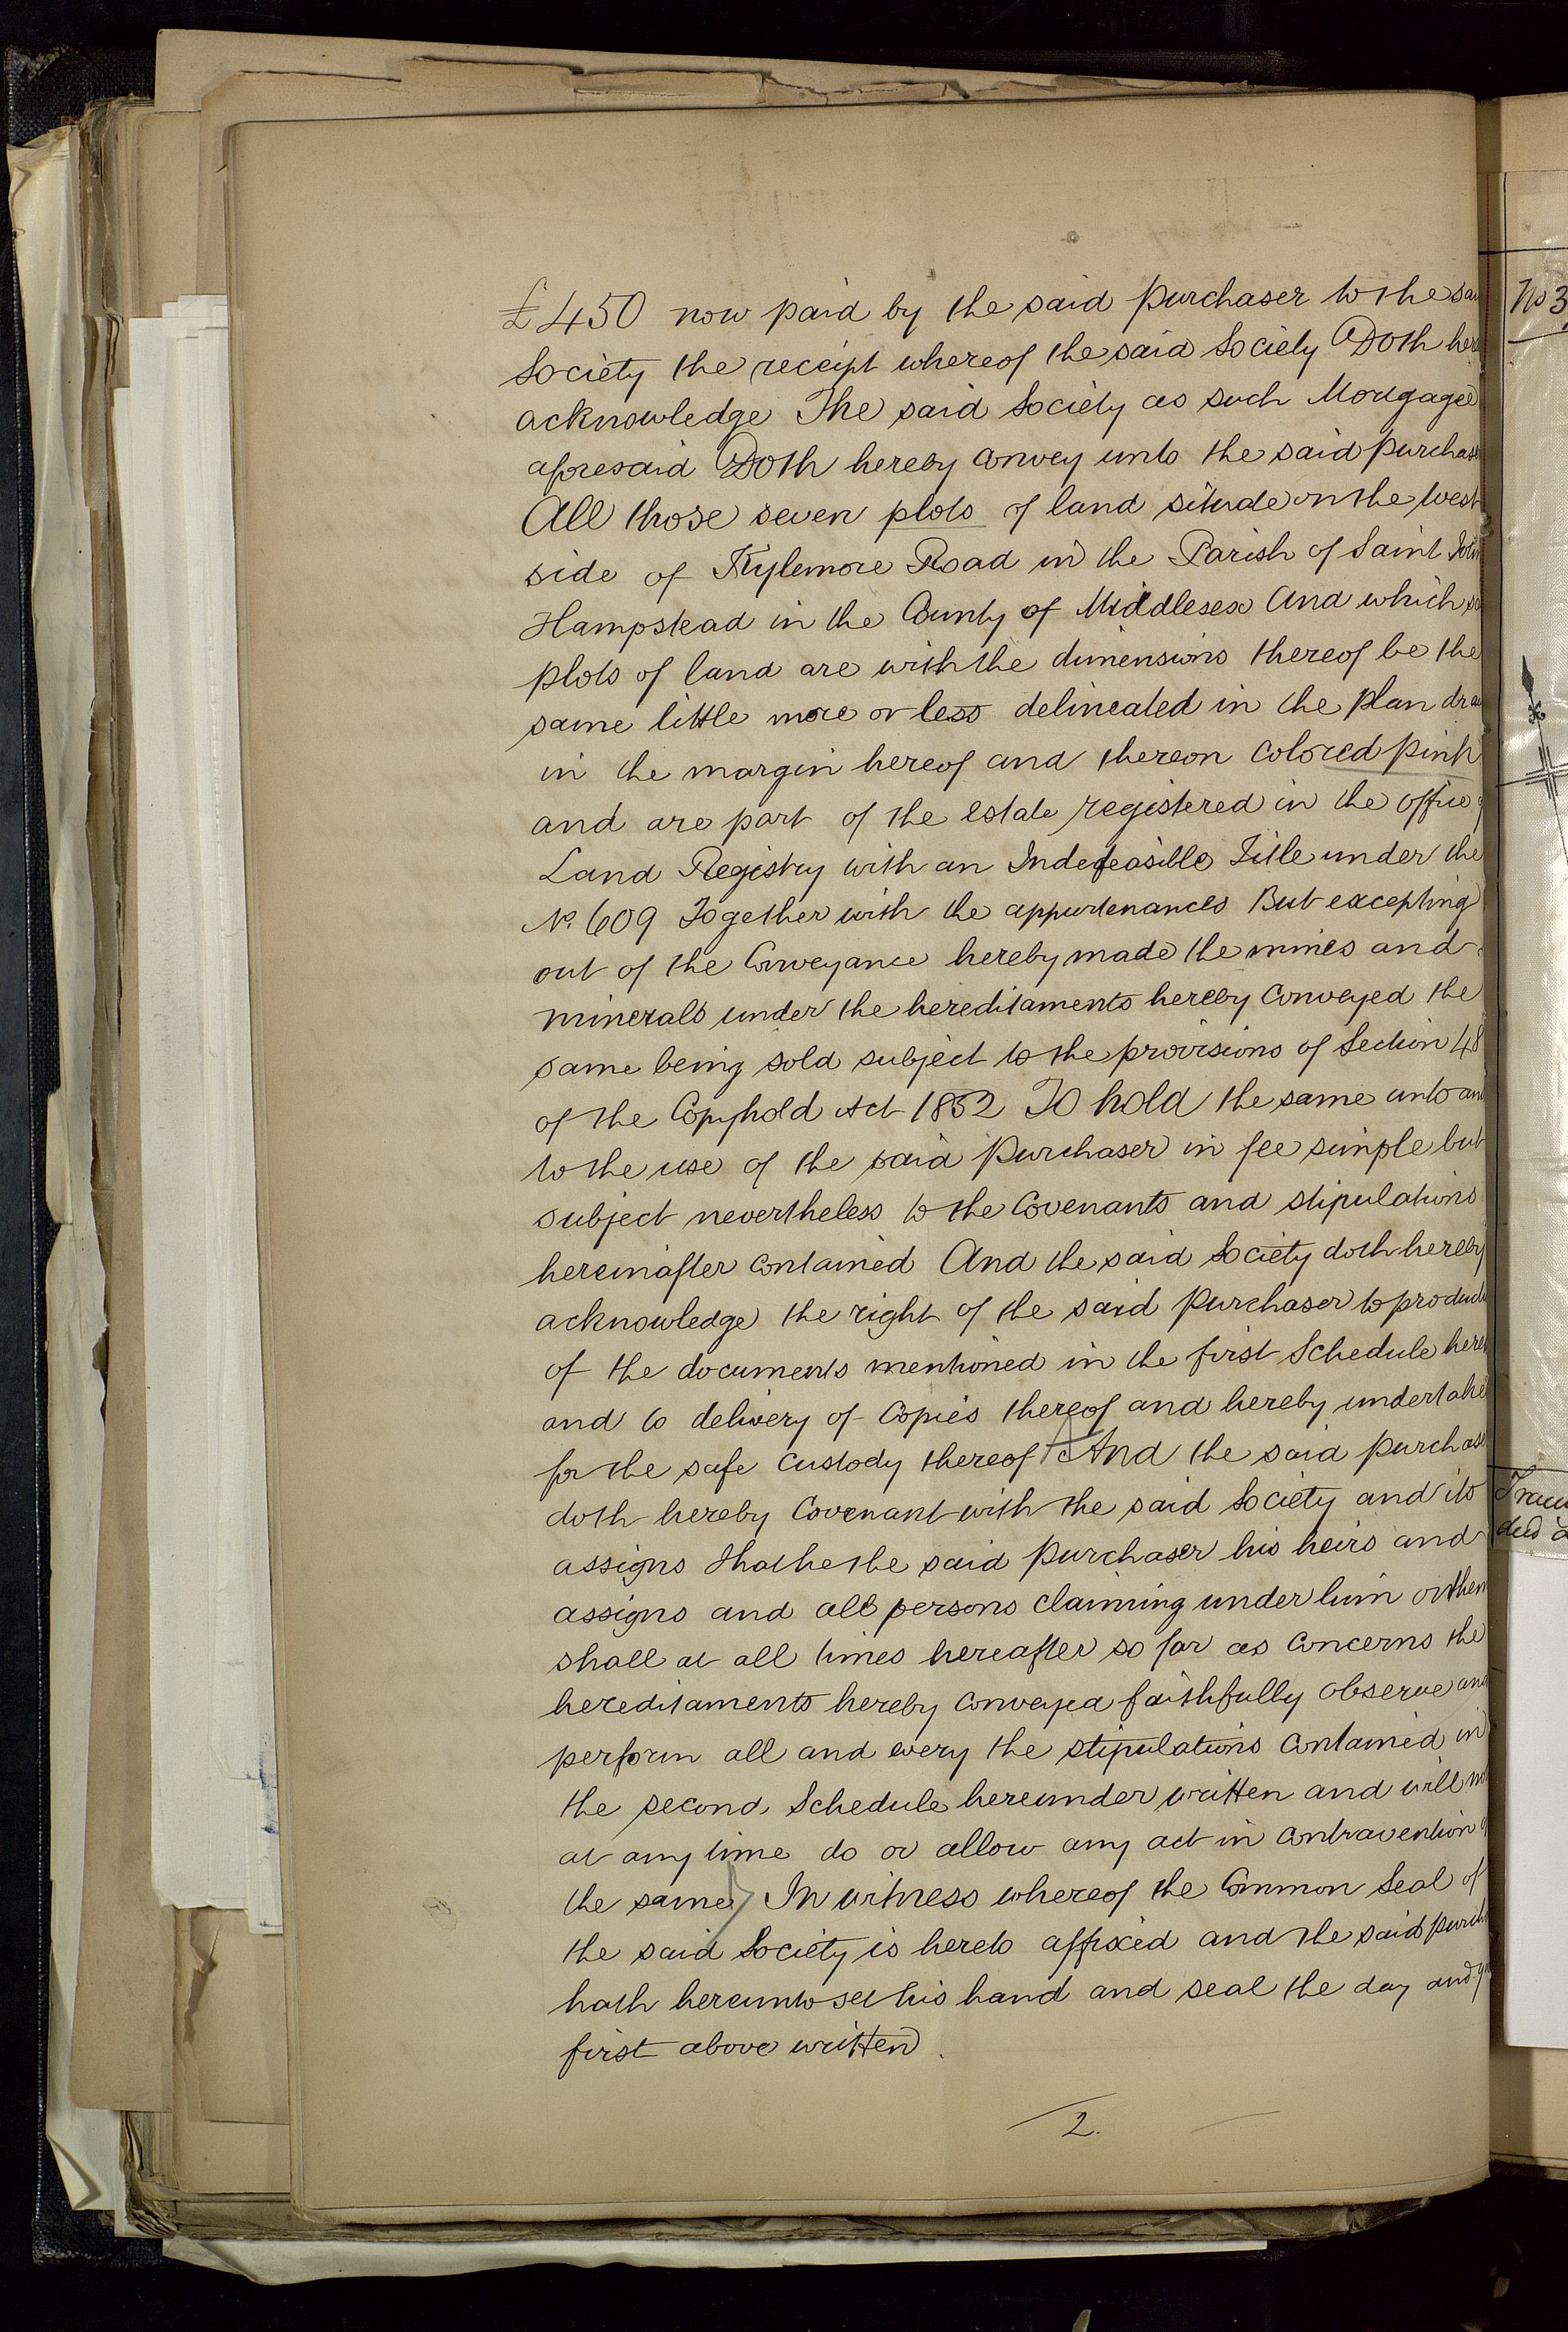 £450 now paid by the said purchaser to the sa
Society the receipt whereof the said Society Doth here
acknowledge The said Society as such Mortgagee
aforesaid Doth hereby Convey unto the said purchase
All those seven plots of land situate on the West
side of Kylemore Road in the Parish of Saint John
Hampstead in the County of Middlesex And which sa
plots of land are with the dimensions thereof be the
same little more or less delineated in the plan dra
in the margin hereof and thereon colored pink
and are part of the estate registered in the office
Land Registry with an Indefeasible Title under the
No. 609 Together with the appurtenances But excepting
out of the Conveyance hereby made the mines and
minerals under the hereditaments hereby Conveyed the
same being sold subject to the provisions of Section 48
of the Copyhold Act 1852 To hold the same unto and
to the use of the said Purchaser in fee simple but
subject nevertheless to the Covenants and stipulations
hereinafter contained And the said Society doth hereby
acknowledge the right of the said Purchaser to producti
of the documents mentioned in the first Schedule heret
and to delivery of Copies thereof and hereby undertake
for the safe custody thereof And the said purchase
doth hereby Covenant with the said Society and its
assigns that he the said Purchaser his heirs and
assigns and all persons claiming under him or them
shall at all times hereafter so far as concerns the
hereditaments hereby conveyed faithfully observe and
perform all and every the stipulations contained in
the second Schedule hereunder written and will not
at any time do or allow any act in contravention of
the same In witness whereof the Common Seal of
the said Society is hereto affixed and the said purch
hath hereunto set his hand and seal the day and y
first above written.
2.
No 3